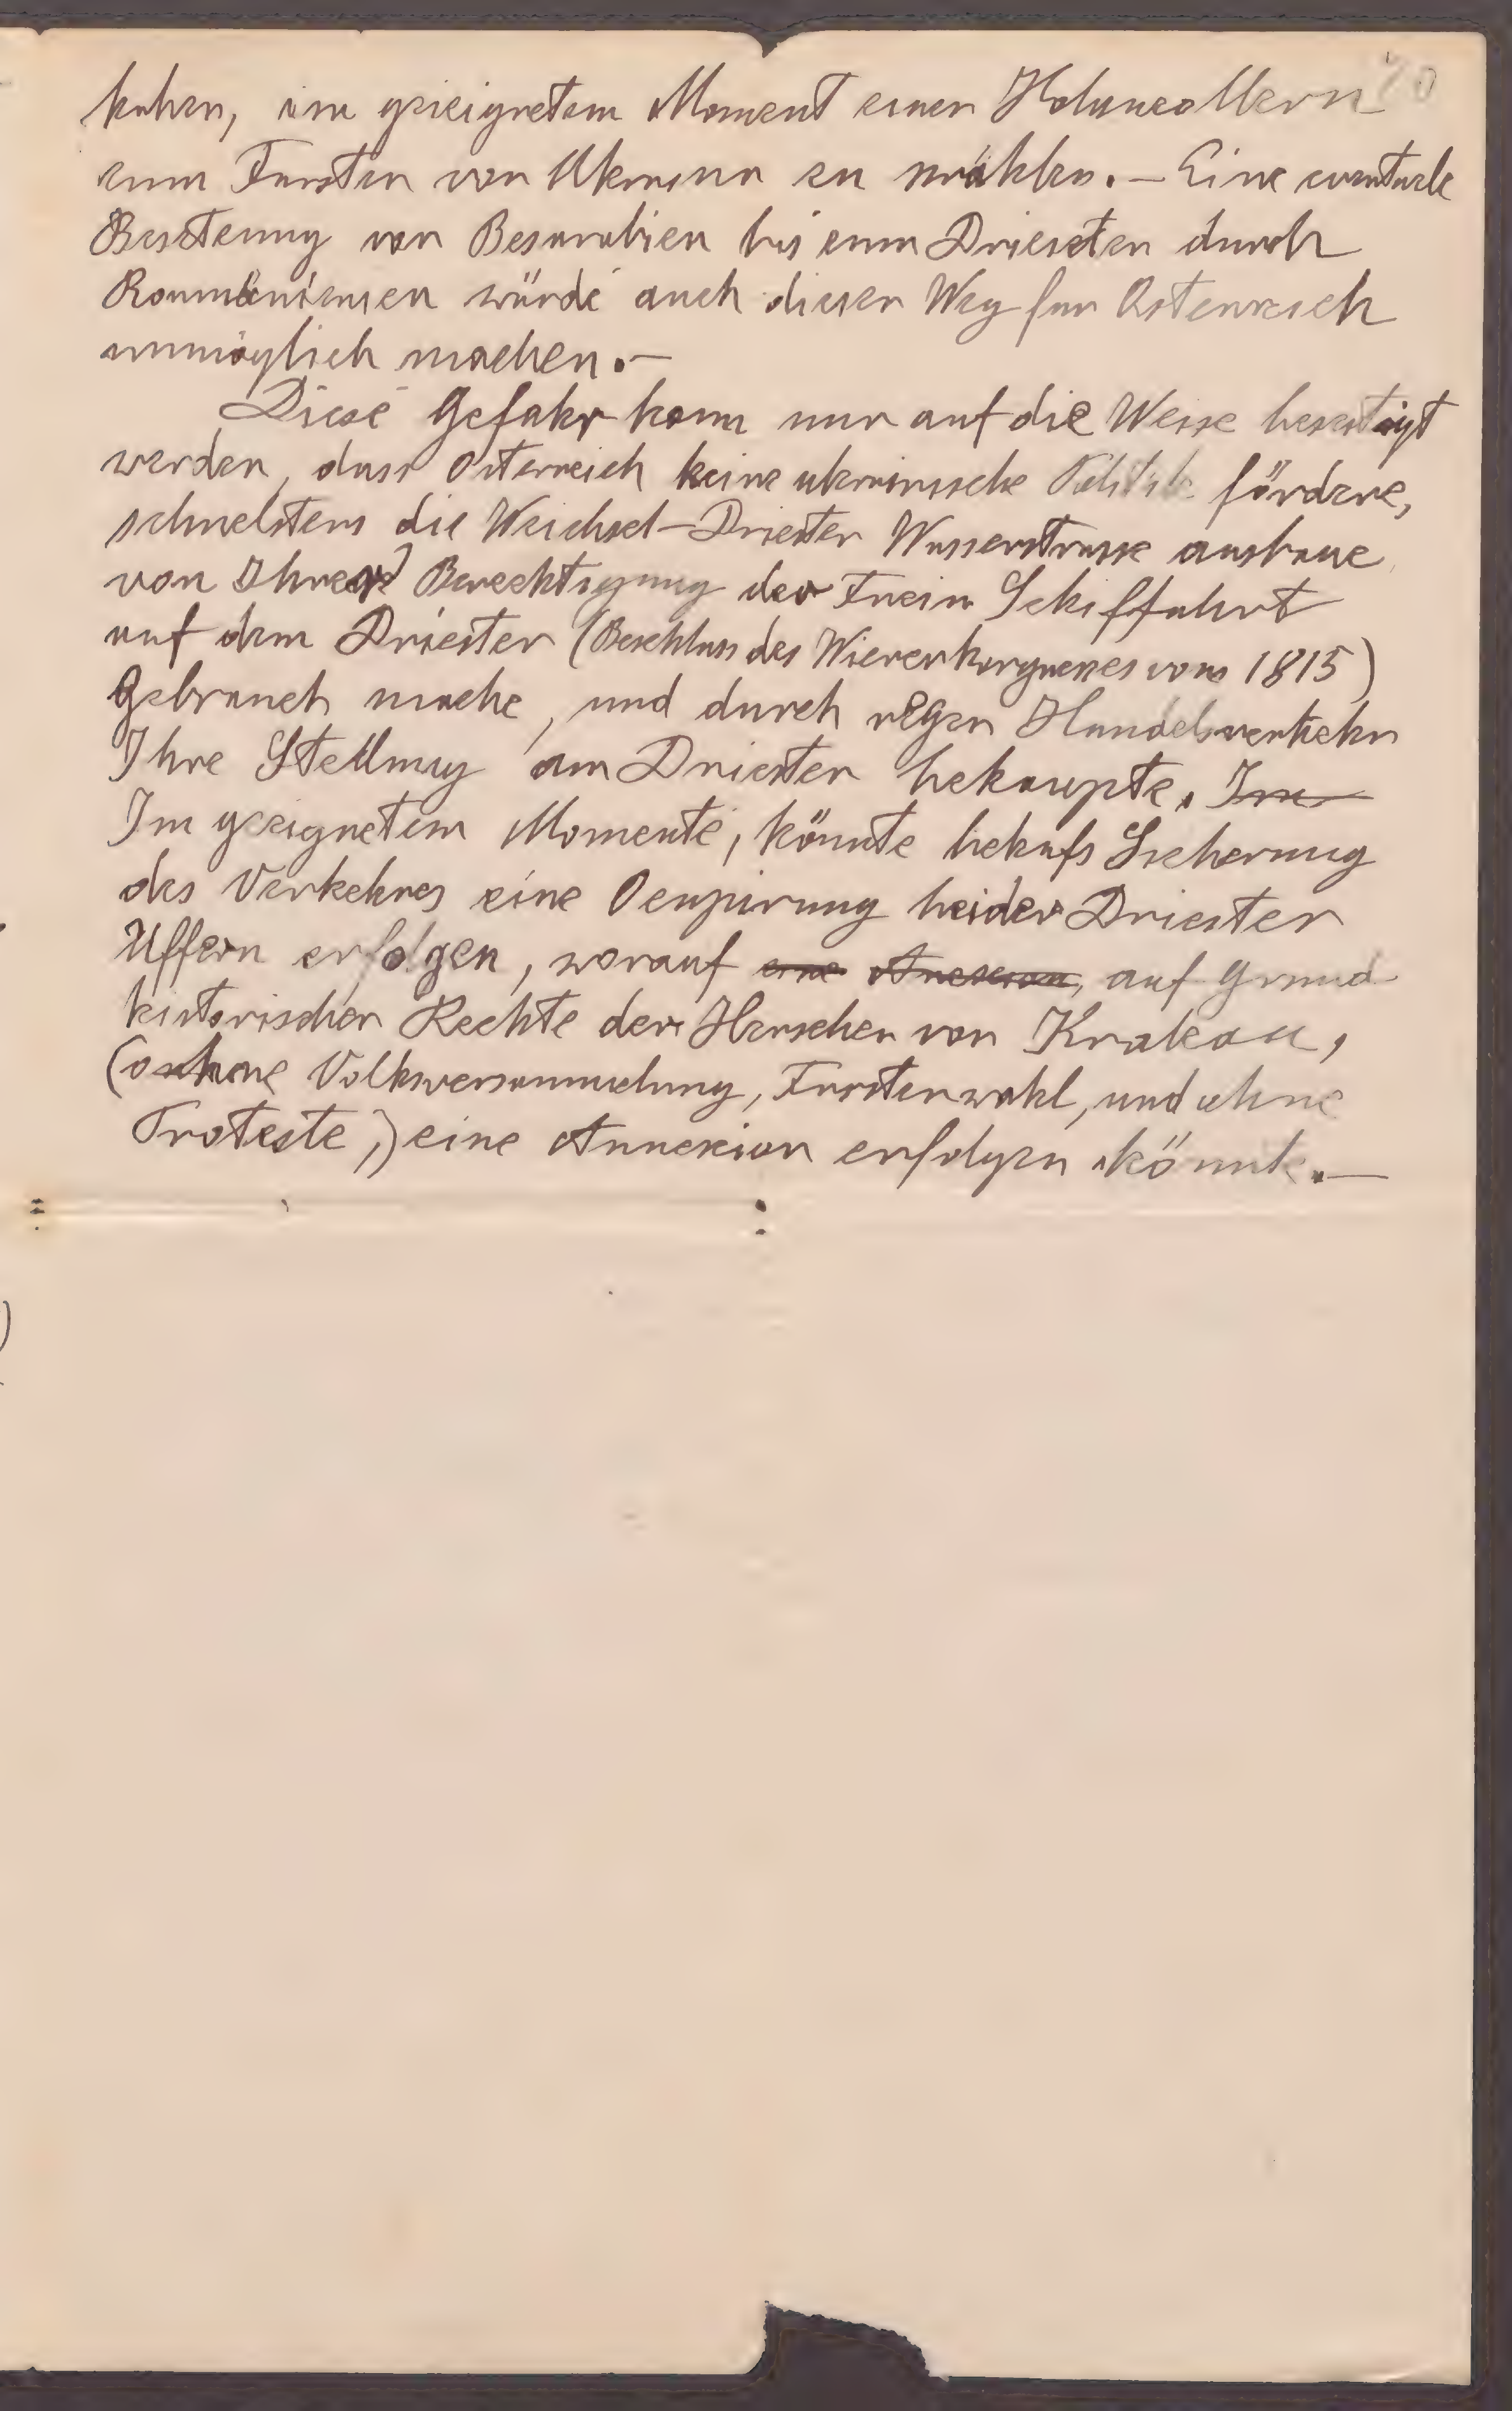 haben, im geeignetem Moment einen Hohenzollern
zum Fursten von Ukraina zu wählen. – Eine eventuele
Besetzung von Besarabien bis zum Driester durch
Roumänien würde auch diesen Weg fur Osterreich
unmöglich machen. –
Diese Gefahr kann nur auf die Weise beseitigt
werden, dass Osterreich keine ukrainische Politik fördere,
schnelstens die Weichsel-Driester Wasserstrasse ausbaue,
von Ihrer Berechtigung der Freien Schiffahrt
auf dem Driester (Beschluss des Wienerkongresses vom 1815)
Gebrauch mache, und durch regen Handelsverkehr
Ihre Stellung am Driester behaupte. Im
Im geeignetem Momente, könnte behufs Sicherung
des Verkehres eine Ocupirung beider Driester
Uffern erfolgen, worauf eine Anexion, auf Grund
historischer Rechte der Herscher von Krakau,
(ohne Volksversammelung, Furstenwahl, und ohne
Proteste,) eine Annexion erfolgen könnte. –